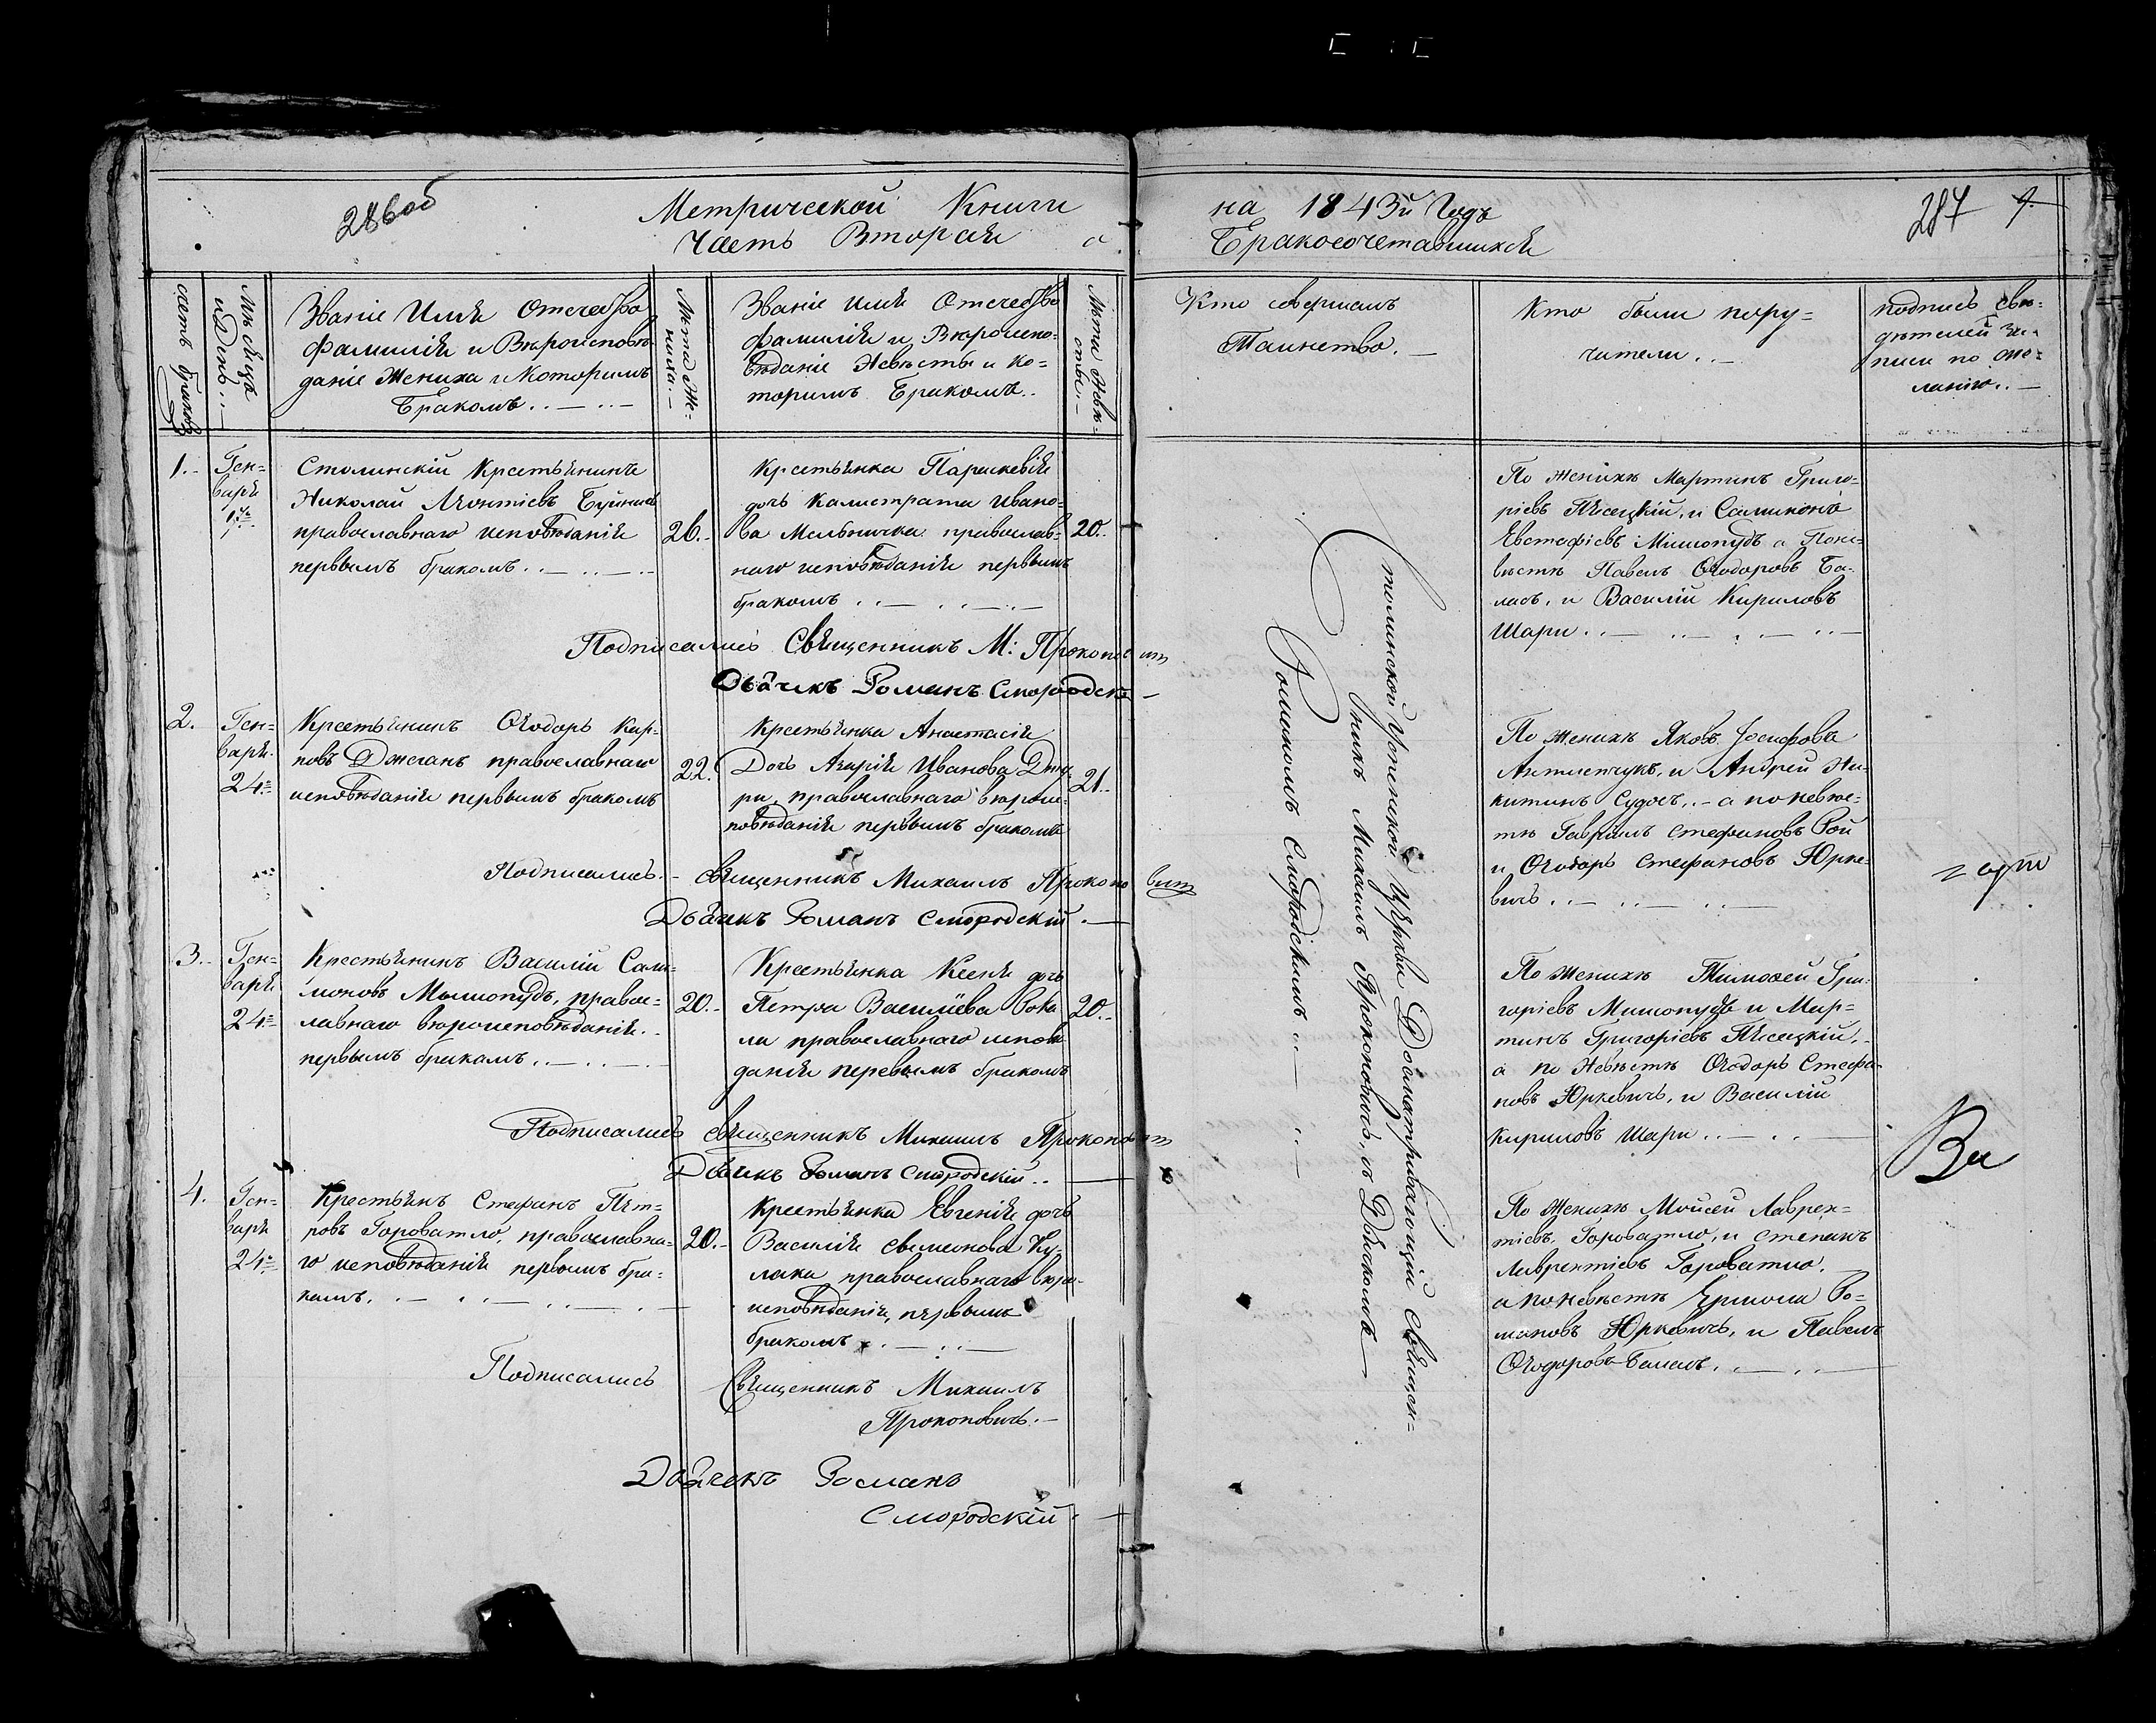 286об
Метрической Книги
Часть Вторая о
на 1843й Годъ
Бракосочетавшихся
287
счетъ браковъ
Мѣсяцъ и День
Званіе Имя Отечество
Фамилія и Вѣроисповѣ-
даніе Жениха и Которымъ
Бракомъ
Лѣта Же-
ниха
Званіе Имя Отечество
Фамилія и Вѣроиспо-
вѣданіе Невѣсты и ко-
торымъ Бракомъ
Лѣта Невѣ-
сты
Кто совершалъ
Таинство.
Кто были пору-
чители
подпись сви-
дѣтелей за-
писи по же-
ланію
1.
Ген-
варя
Столинскій Крестьянинъ
Николай Леонтіевъ
православнаго исповѣданія
первымъ бракомъ
26.
Крестьянка Параскевія
дочь Калистрата Ивано-
ва Мельничка православ-
наго исповѣданія первымъ
бракомъ
20.
По Женихѣ Мартинъ Григо-
ріевъ Пясецкій, и Самимонъ
Евстафіевъ Мишопудъ а По не-
вѣстѣ Павелъ Ѳеодоровъ Ба-
ласъ, и Василій Кириловъ
Шари
Подписались Священникъ М: Прокопович
Дьячекъ Романъ Смородскі
2.
Ген-
варя
24
Крестьянинъ Ѳеодоръ Кар-
повъ Джеганъ православнаго
исповѣданія первымъ бракомъ
22.
Крестьянка Анастасія
Дочь Азарія Иванова
ри, православнаго вѣрои-
повѣданія первымъ бракомъ
21.
По Женихѣ Яковъ Іосифовъ
и Андрей Ни-
китинъ Судосъ, а по невѣс-
тѣ Гавріилъ Стефановъ Рой
и Ѳеодоръ Стефановъ Юрке-
вичъ
Подписались Священникъ Михаилъ Прокопович
Дьячекъ Романъ Смородскій
3.
Ген-
варя
24
Крестьянинъ Василій Сали-
моновъ Мишопудъ, правос-
лавнаго вѣроисповѣданія
первымъ бракомъ
20.
Крестьянка Ксенія дочь
Петра Василіева Рока
ла православнаго исповѣ
данія первымъ бракомъ
20.
По Женихѣ Тимоѳей Гри-
горіевъ Мишопудъ и Мар-
тинъ Григоріевъ Пясецкій,
а по Невѣстѣ Ѳеодоръ Стефа-
новъ Юркевичъ, и Василій
Кириловъ Шари
Подписались Священникъ Михаилъ Прокопович
Дьячекъ Романъ Смородскій
4.
Ген-
варя
24
Крестьянъ Стефанъ Пет-
ровъ Гороватло, православна-
го исповѣданія первымъ бра-
комъ.
20.
Крестьянка Евгенія дочь
Василія Симеонова Ку-
лака православнаго вѣро-
исповѣданія, первымъ
бракомъ
По Женихѣ Мойсей Лаврен-
тіевъ Гороватло, и Степанъ
Лаврентіевъ Гороватло,
а по невѣстѣ Ермола Ро-
мановъ Юркевичъ, и Павелъ
Ѳеодоровъ
Подписались Священникъ Михаилъ
Прокоповичъ.
Дьячекъ Романъ
Смородскій
Столинской Успенской Церкви Досматривающій Священ-
никъ Михаилъ Прокоповичъ, съ Дьячкомъ
Романомъ Смородскимъ